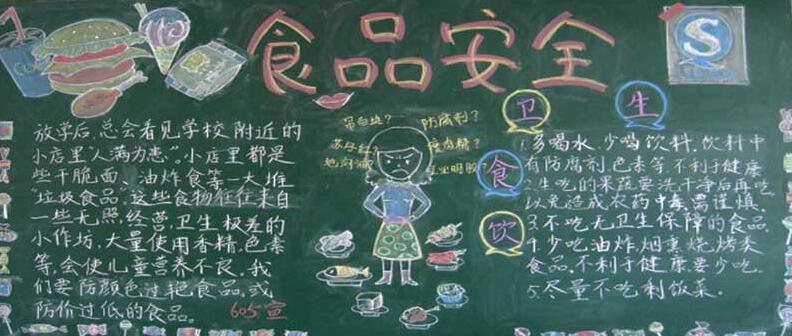 食品安全
S
放学后,总会看见学校附近的
小店里"人满为患"。小店里都是
些干脆面、油炸食等一大堆
"垃圾食品",这些食物往往来自
一些无照经营,卫生极差的
小作坊,大量使用香精,色素
等,会使儿童营养不良,我
们要防颜色过艳食品,或
防价过低的食品。
605宣
吊白块?
防腐剂?
苏丹红?
瘦肉精?
地沟油?
工业明胶?
卫生
饮食
1.多喝水,少喝饮料,饮料中
有防腐剂,色素等,不利于健康
2.生吃的果蔬要洗干净后再吃
以免造成农药中毒,需谨慎.
3.不吃无卫生保障的食品
4.少吃油炸,烟熏,烧烤类
食品,不利于健康,要少吃.
5.尽量不吃剩饭菜.